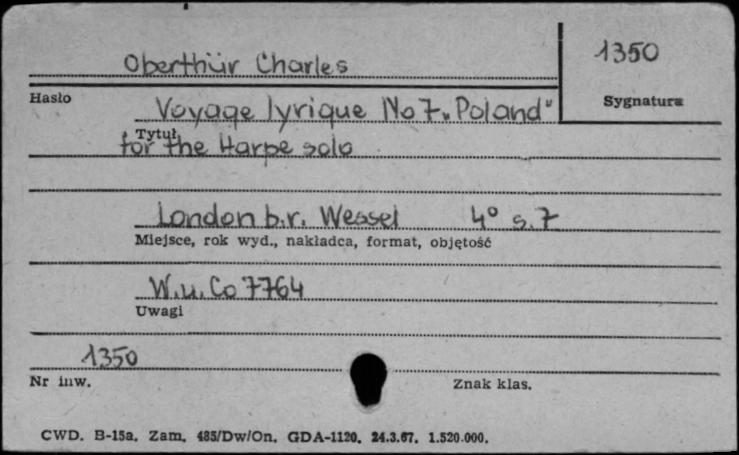 Oberthür Charles
1350
Hasło
Sygnatura
Voyage lyrique No 7 „Poland"
Tytuł
for the Harpe solo
London b.r. Wessel 4° s. 7
Miejsce, rok wyd., nakładca, format, objętość
W. u. Co 7764
Uwagi
1350
Nr inw.
Znak klas.
CWD. B-15a. Zam. 485/Dw/On. GDA-1120. 24.3.67. 1.520.000.